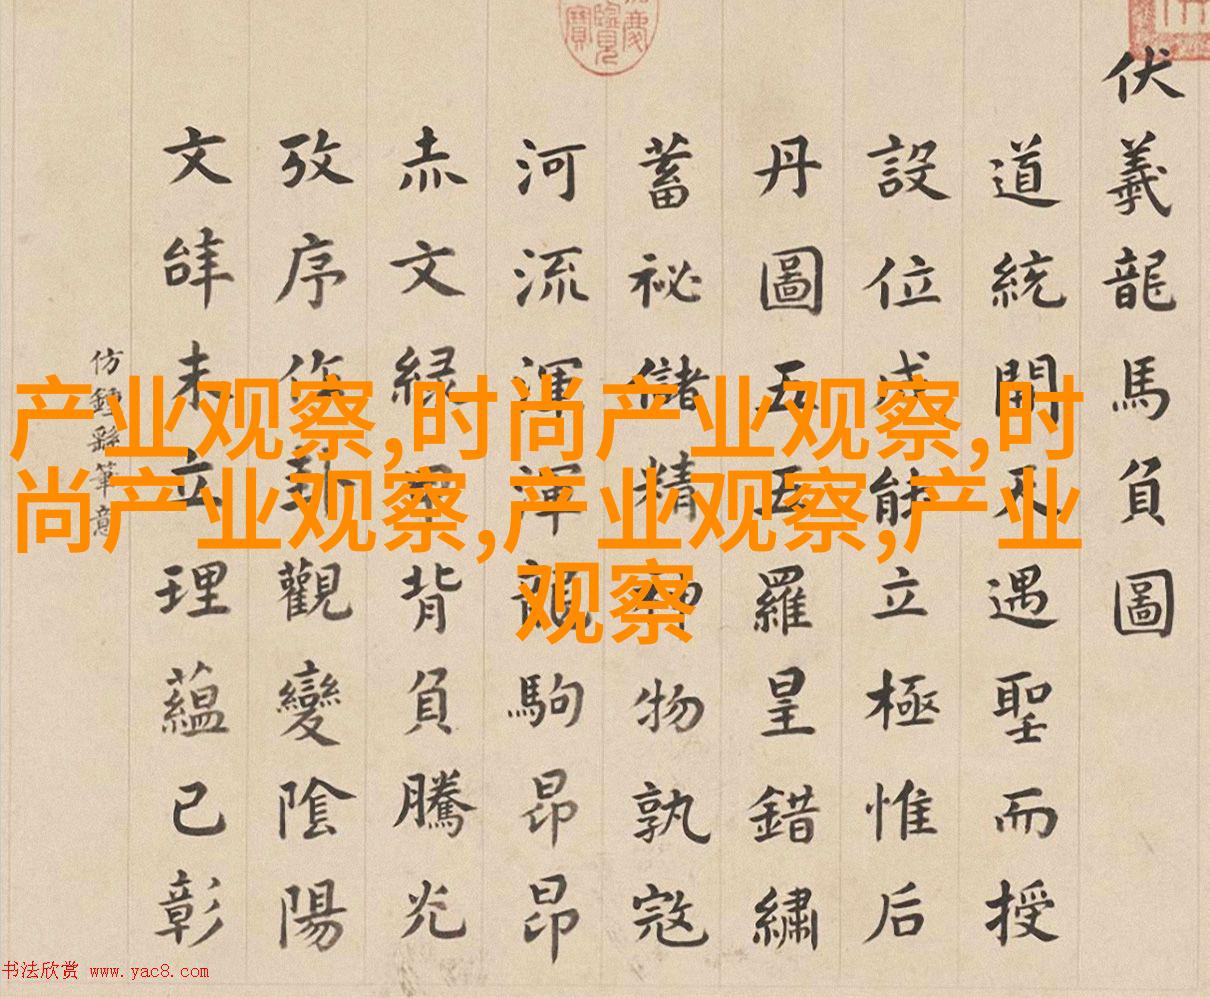 伏羲龍馬負圖
道統開天遇聖而授
設位成能立極惟后
丹圖五五羅皇錯繡
蓄祕儲精神物孰寇
河流渾渾龍駒昂昂
赤文緑背負騰光
攷序作卦觀變陰陽
文辝未立理蘊已彰
仿鍾繇筆意
产业观察,时尚产业观察,时
尚产业观察,产业观察,产业
观察
书法欣赏 www.yac8.com